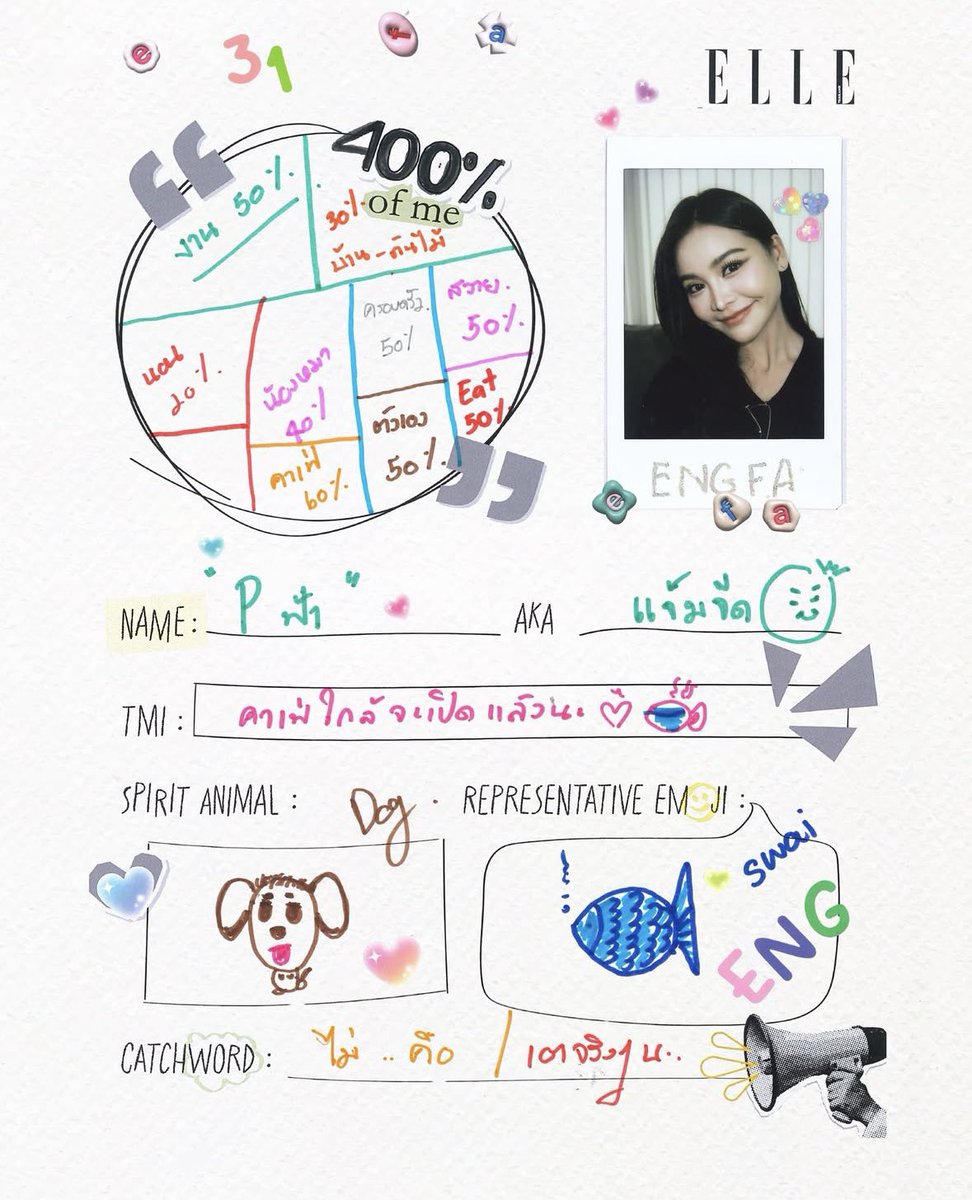 e f a
31
ELLE
400%
of me
งาน 50%
30%
บ้าน - ต้นไม้
นอน
20%
น้องหมา
40%
ครอบครัว
50%
สวาย
50%
คาเฟ่
60%
ตัวเอง
50%
Eat
50%
ENGFA
e f a
NAME: "P ฟ้า"
AKA แจ่มจืด
TMI: คาเฟ่ใกล้จะเปิดแล้วนะ
SPIRIT ANIMAL: Dog.
REPRESENTATIVE EMOJI:
swai
ENG
CATCHWORD: ไม่ .. คือ /